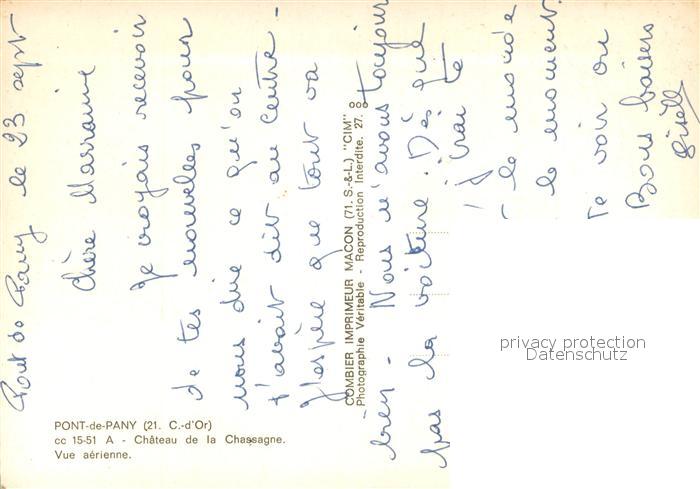 Pont de Pany le 23 sept
Chère Marraine
Je croyais recevoir
de tes nouvelles pour
nous dire ce qu'on
t'avait dit au centre.
J'espère que tout va
bien. Nous n'avons toujours
pas la voiture. Dès que
j'irai te
le monde
le moment
te voir ou
Bons baisers
Giselle
COMBIER IMPRIMEUR MACON (71. S.-&-L.) "CIM"
Photographie Véritable - Reproduction Interdite. 27.
PONT-de-PANY (21. C.-d'Or)
cc 15-51 A - Château de la Chassagne.
Vue aérienne.
privacy protection
Datenschutz